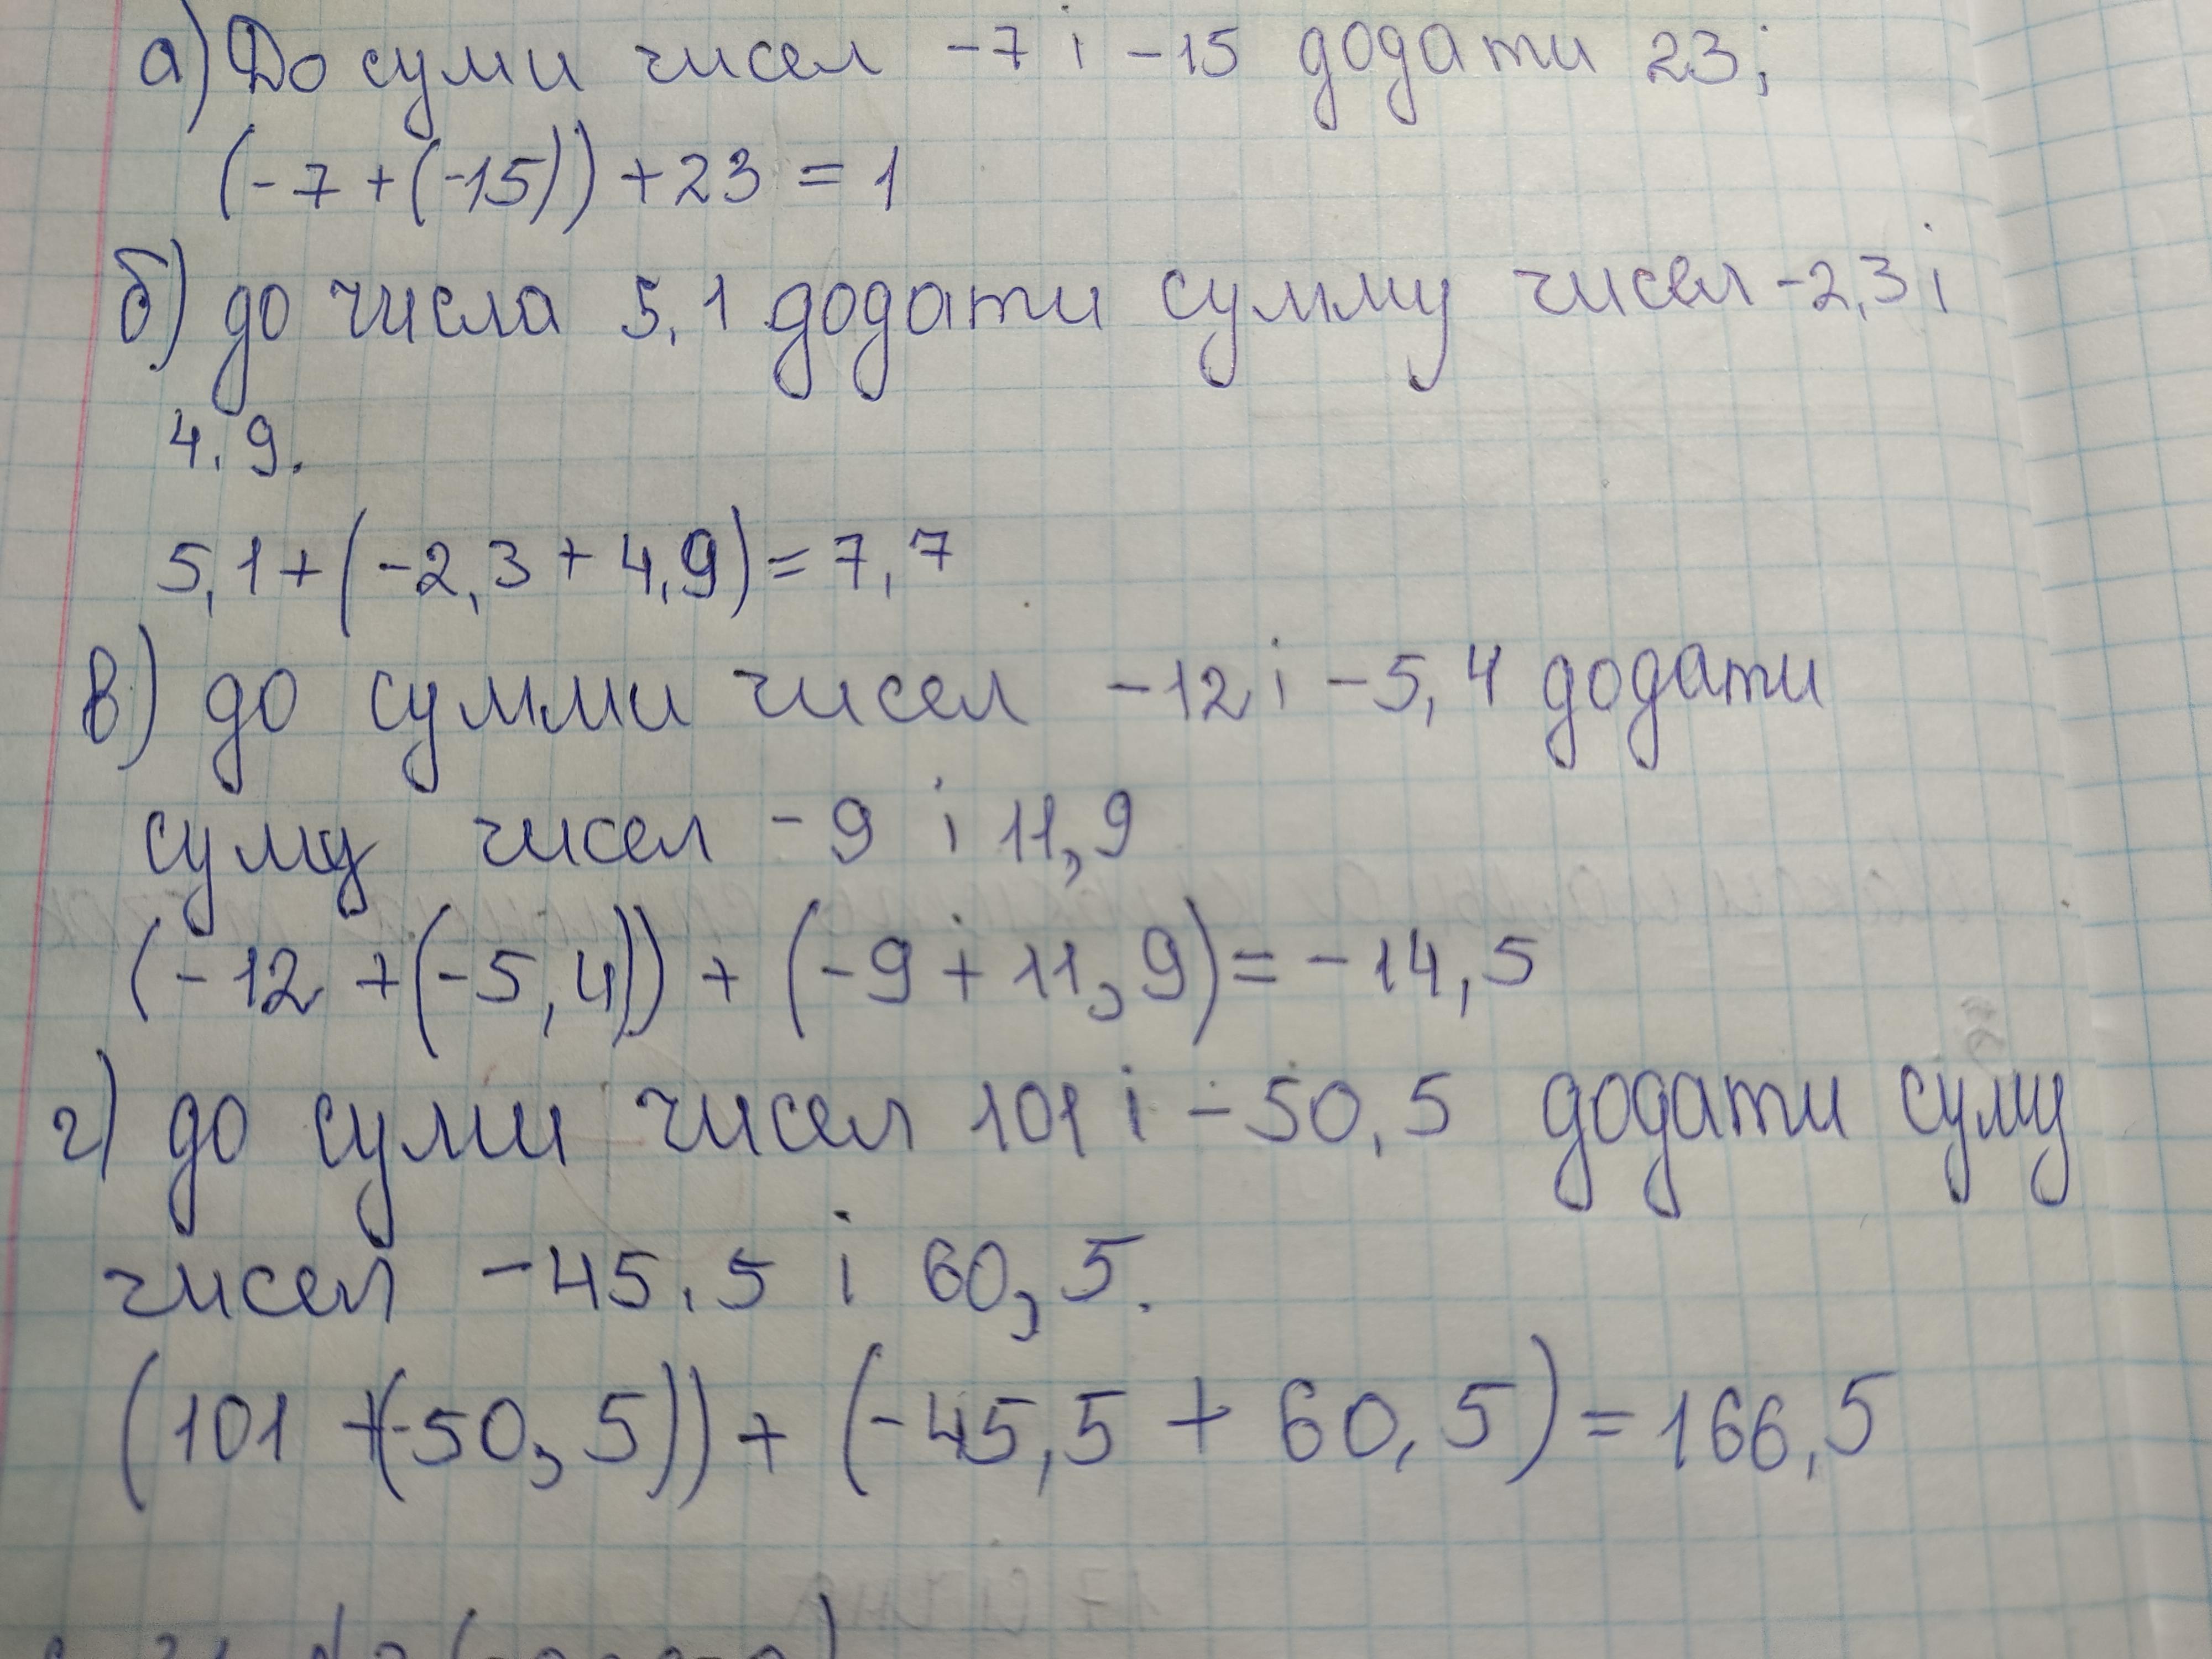 а) До суми чисел -7 і -15 додати 23;
(-7+(-15))+23=1
б) до числа 5,1 додати сумму чисел -2,3 і
4,9.
5,1+(-2,3+4,9)=7,7
в) до сумми чисел -12 і -5,4 додати
суму чисел -9 і 11,9
(-12+(-5,4))+(-9+11,9)=-14,5
г) до суми чисел 101 і -50,5 додати суму
чисел -45,5 і 60,5.
(101+(-50,5))+(-45,5+60,5)=166,5